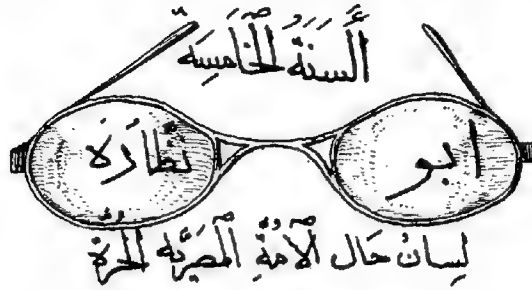 أَلسَنَةُ الخَامِسَة
ابو نظارة
لِسانْ حَال الأُمةِ المصَرِية الحُرة